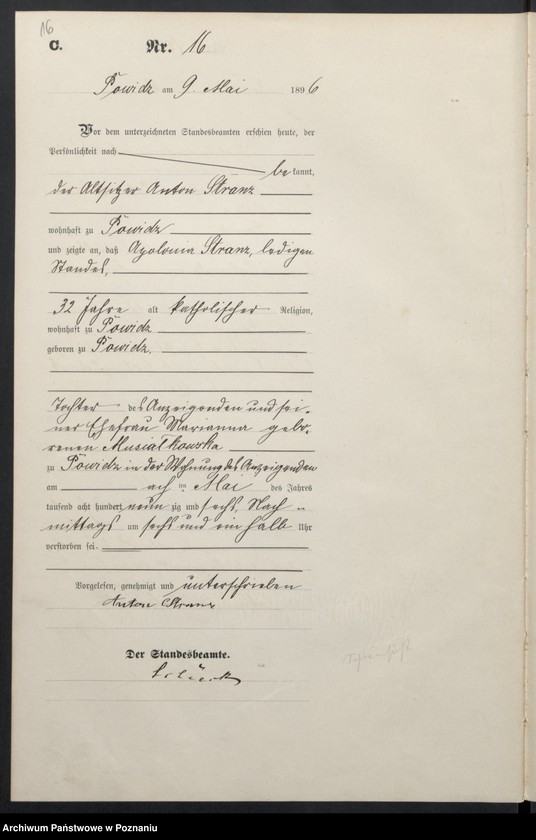 16
C. Nr. 16
Powidz am 9. Mai 1896
Vor dem unterzeichneten Standesbeamten erschien heute, der
Persönlichkeit nach
be kannt,
der Altsitzer Anton Stranz
wohnhaft zu Powidz
und zeigte an, daß Apolonia Stranz, ledigen
Standes,
32 Jahre alt katholischer Religion,
wohnhaft zu Powidz
geboren zu Powidz,
Tochter des Anzeigenden und sei-
ner Ehefrau Marianna gebo-
renen Musialkowska
zu Powidz in der Wohnung des Anzeigenden
am acht ten Mai des Jahres
tausend acht hundert neun zig und sechs, Nach-
mittags um sechs und ein halb Uhr
verstorben sei.
Vorgelesen, genehmigt und unterschrieben
Anton Stranz
Der Standesbeamte.
Archiwum Państwowe w Poznaniu